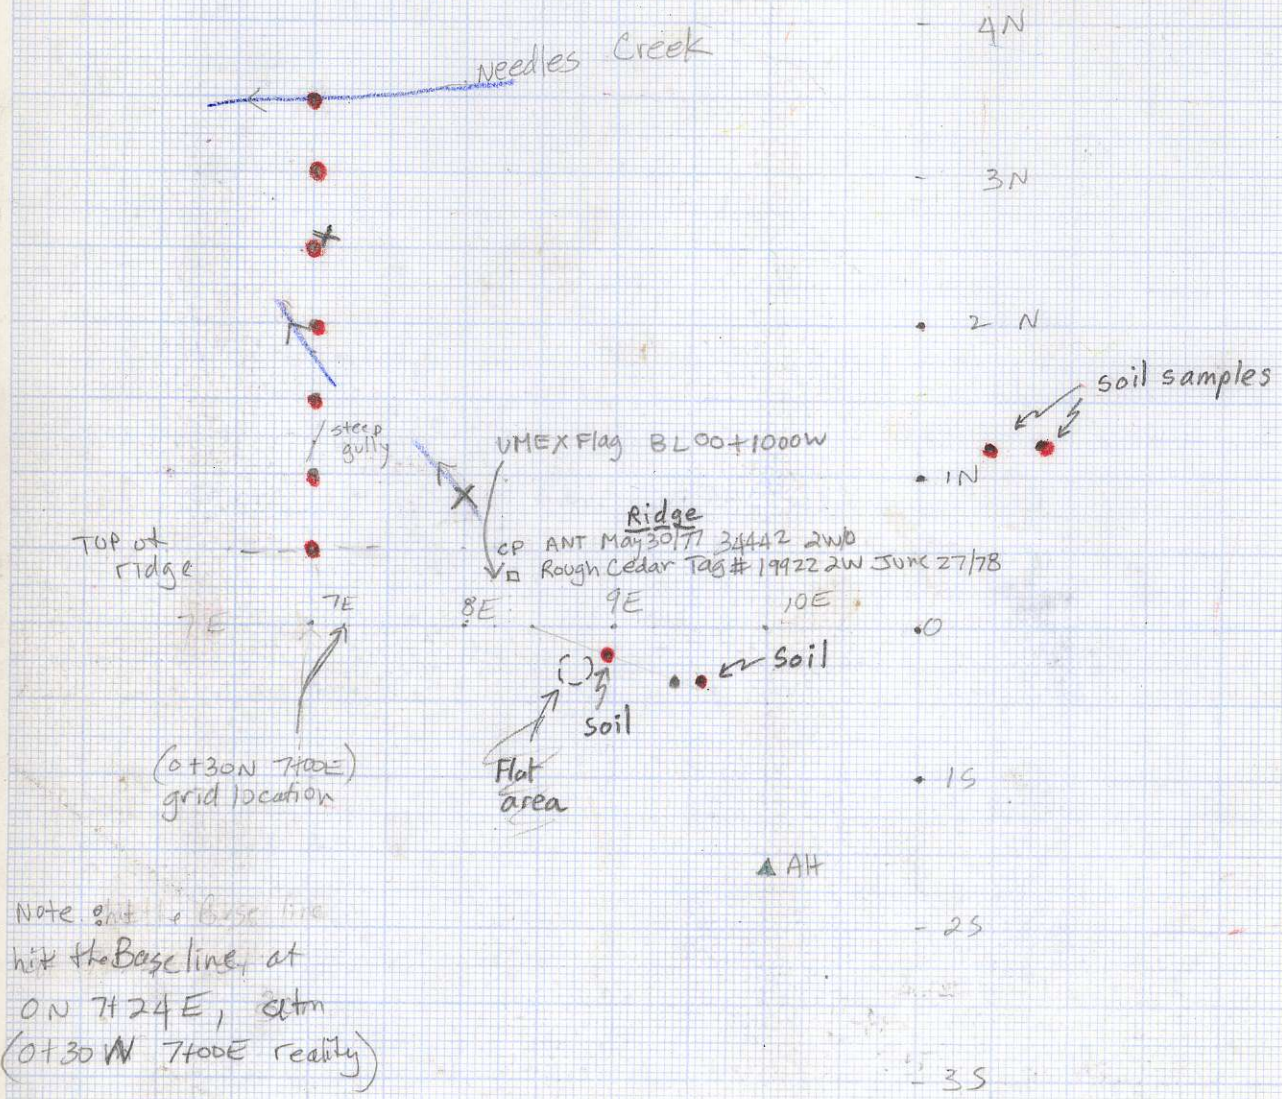 4N
Needles Creek
3N
2 N
soil samples
steep
gully
UMEX Flag BL00+1000W
1N
Ridge
TOP of
ridge
CP ANT May 30/77 34442 2W
Rough Cedar Tag# 19922 2W June 27/78
7E
7E
8E
9E
10E
0
soil
soil
(0+30N 7+00E)
grid location
Flat
area
1S
AH
Note:
hit the Baseline, at
0N 7+24E,
(0+30N 7+00E reality)
2S
3S